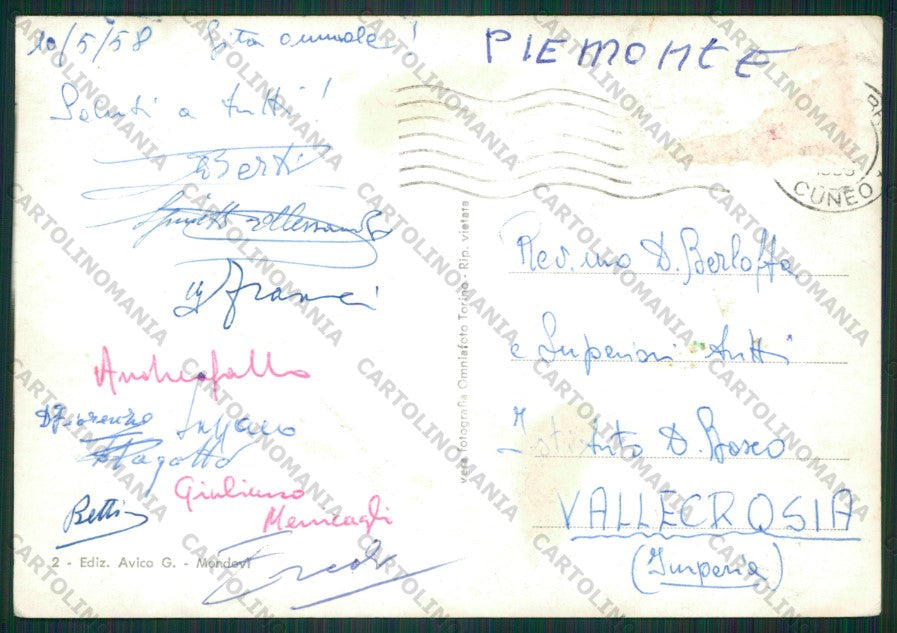 10/5/58 Gita annuale!
Saluti a tutti!
Berti
Alessandro
Franci
Andreafallo
D Fiorenzo
Fagotto
Giuliano
Mencagli
Betti
2 - Ediz. Avico G. - Mondovì
vera fotografia Omniafoto Torino - Rip. vietata
PIEMONTE
CUNEO
Rev.mo D. Berloffa
e Superiori tutti
Istituto D. Bosco
VALLECROSIA
(Imperia)
CARTOLINOMANIA